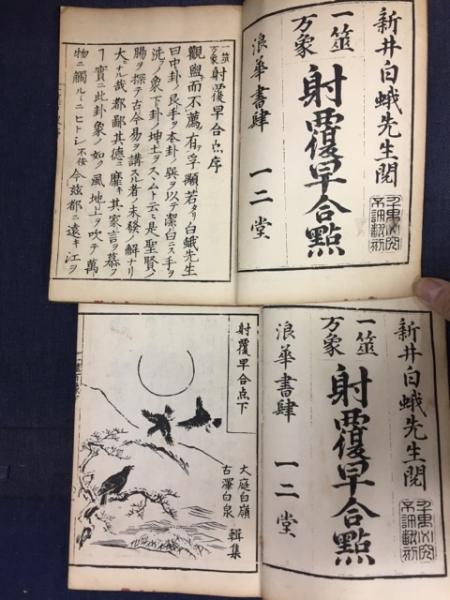 新井白蛾先生閲
一筮万象 射覆早合點
浪華書肆 一二堂
一筮万象 射覆早合点序
觀盥而不薦有孚顒若タリ白蛾先生
曰中卦ノ艮手ヲ本卦ノ巽ヲ以テ潔白ニス手ヲ
洗ノ象下卦ノ坤土ヲスヽムト云々是聖賢ノ
腸ヲ探テ古今易ヲ講スル者ノ未發ノ解ナリ
大ナル哉都鄙其德ニ靡キ其家言ヲ慕フ
ヿ實ニ此卦象ノ如ク風地上ヲ吹テ萬
物ニ觸ルヽニヒトシ不佞今茲都ニ遠キ江ヲ
新井白蛾先生閲
一筮万象 射覆早合點
浪華書肆 一二堂
射覆早合点下
大庭白嶺
古澤白泉
輯集